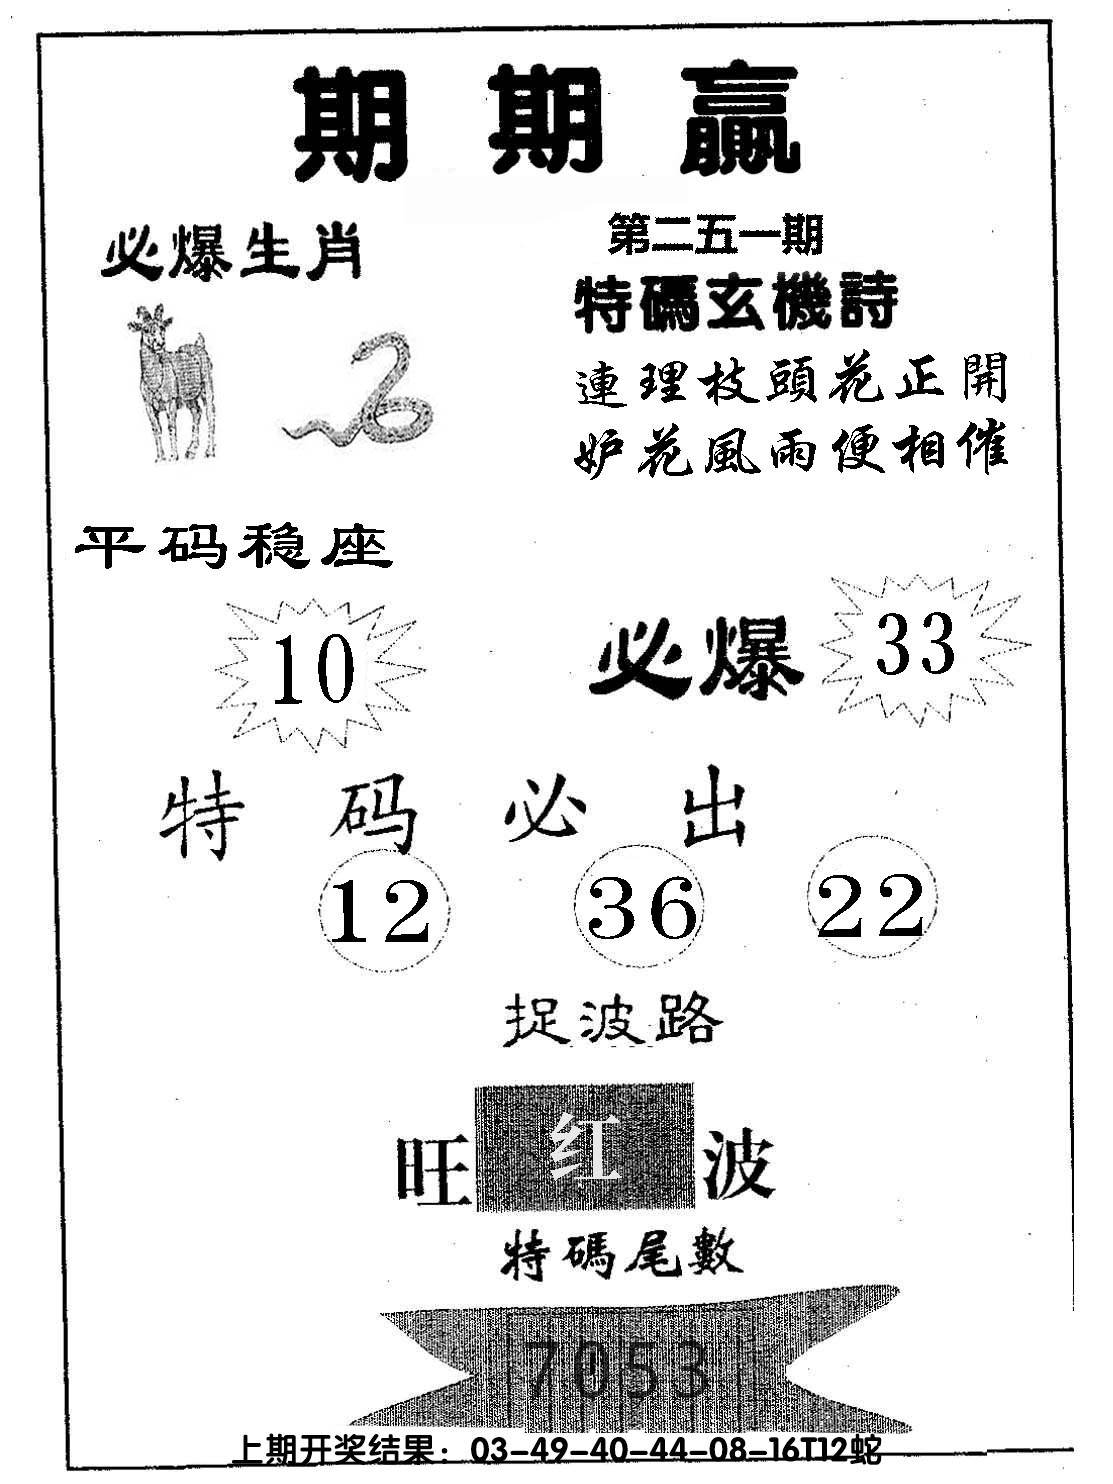 期期赢
必爆生肖
第二五一期
特碼玄機詩
連理枝頭花正開
妒花風雨便相催
平码稳座
10
必爆
33
特码必出
12 36 22
捉波路
旺红波
特碼尾數
7053
上期开奖结果：03-49-40-44-08-16T12蛇